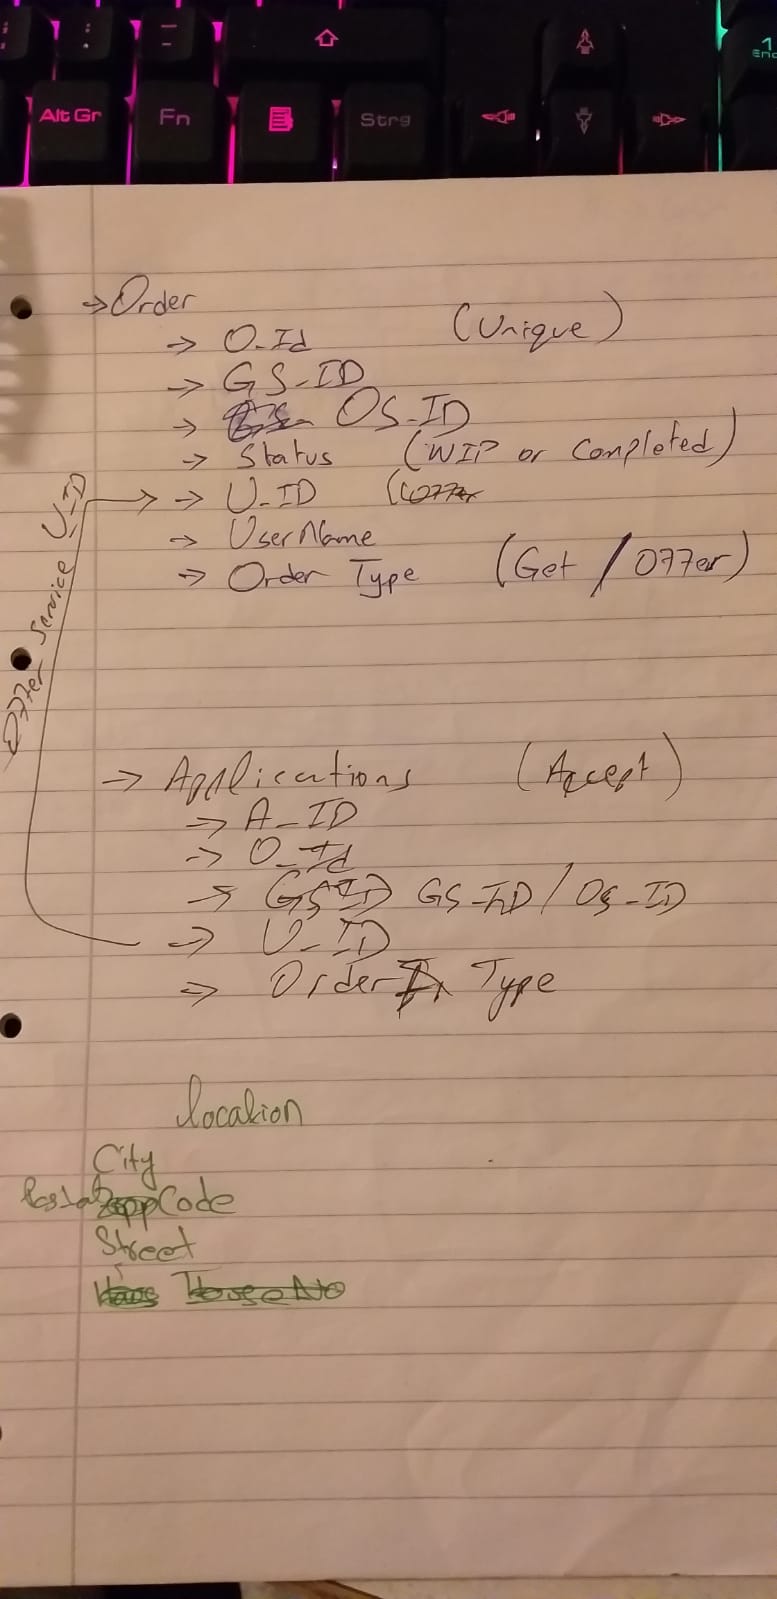 ; : -
AltGr Fn Strg
1
End
→ Order
→ O_Id (Unique)
→ GS_ID
→ OS_ID
→ Status (WIP or Completed)
→ U_ID (Offer
→ UserName
→ Order Type (Get / Offer)
Offer Service U_ID
→ Applications (Accept)
→ A_ID
→ O_Id
→ GSID GS_ID / OS_ID
→ U_ID
→ Order Type
location
City
Postal Code
Street
HouseNo